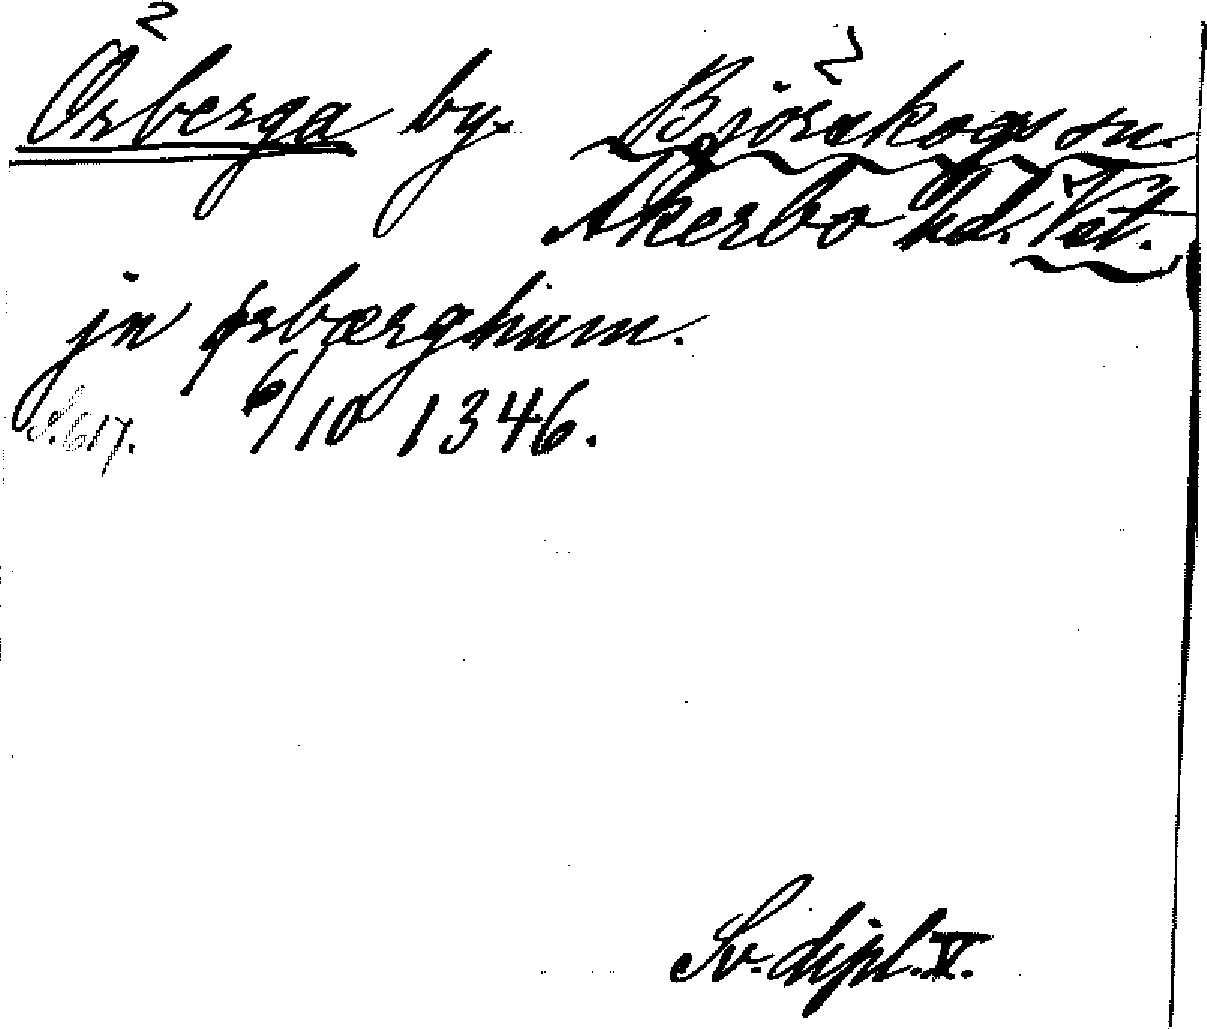 Örberga by. Björskogs sn.
Åkerbo hd. Vstl.
jn ørbærghum.
S. 617. 6/10 1346.
Sv. dipl. V.